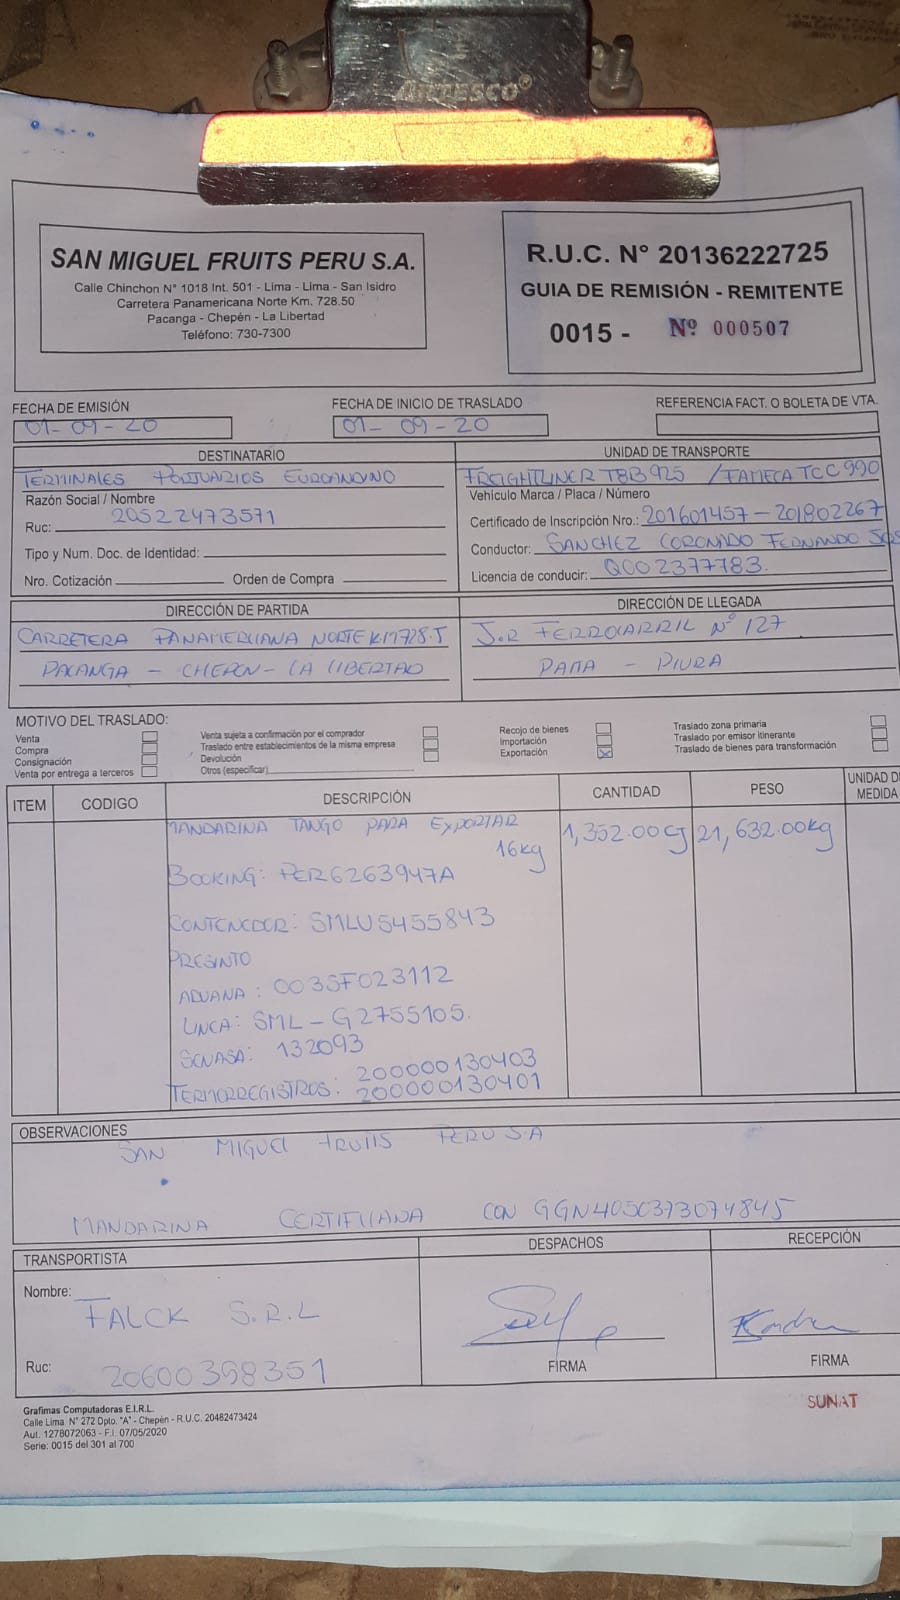 ARTESCO®
SAN MIGUEL FRUITS PERU S.A.
Calle Chinchon N° 1018 Int. 501 - Lima - Lima - San Isidro
Carretera Panamericana Norte Km. 728.50
Pacanga - Chepén - La Libertad
Teléfono: 730-7300
R.U.C. N° 20136222725
GUIA DE REMISIÓN - REMITENTE
0015 - Nº 000507
FECHA DE EMISIÓN
01-09-20
FECHA DE INICIO DE TRASLADO
01-09-20
REFERENCIA FACT. O BOLETA DE VTA.
DESTINATARIO
TERMINALES PORTUARIOS EUROANDINO
Razón Social / Nombre
Ruc: 20522473571
Tipo y Num. Doc. de Identidad:
Nro. Cotización Orden de Compra
UNIDAD DE TRANSPORTE
FREIGHTLINER T8B925 / FAMECA TCC990
Vehículo Marca / Placa / Número
Certificado de Inscripción Nro.: 201601457-201802267
Conductor: SANCHEZ CORONADO FERNANDO
Licencia de conducir: Q002377783.
DIRECCIÓN DE PARTIDA
CARRETERA PANAMERICANA NORTE KM728.5
PACANGA - CHEPEN - LA LIBERTAD
DIRECCIÓN DE LLEGADA
J.R FERROCARRIL N° 127
PAITA - PIURA
MOTIVO DEL TRASLADO:
Venta
Compra
Consignación
Venta por entrega a terceros
Venta sujeta a confirmación por el comprador
Traslado entre establecimientos de la misma empresa
Devolución
Otros (especificar)
Recojo de bienes
Importación
Exportación X
Traslado zona primaria
Traslado por emisor itinerante
Traslado de bienes para transformación
ITEM CODIGO DESCRIPCIÓN CANTIDAD PESO UNIDAD D MEDIDA
MANDARINA TANGO PARA EXPORTAR 1,352.00CJ 21,632.00kg
16kg
BOOKING: PER6263947A
CONTENEDOR: SMLU5455843
PRESINTO
ADUANA: 003SF023112
LINEA: SML-G2755105.
SENASA: 132093
200000130403
TERMORREGISTROS: 200000130401
OBSERVACIONES
SAN MIGUEL FRUITS PERU S.A
MANDARINA CERTIFICADA CON GGN4050373074845
TRANSPORTISTA
Nombre:
FALCK S.R.L
Ruc: 20600398351
DESPACHOS
FIRMA
RECEPCIÓN
FIRMA
Grafimas Computadoras E.I.R.L.
Calle Lima. N° 272 Dpto. "A" - Chepén - R.U.C. 20482473424
Aut. 1278072063 - F.I. 07/05/2020
Serie: 0015 del 301 al 700
SUNAT